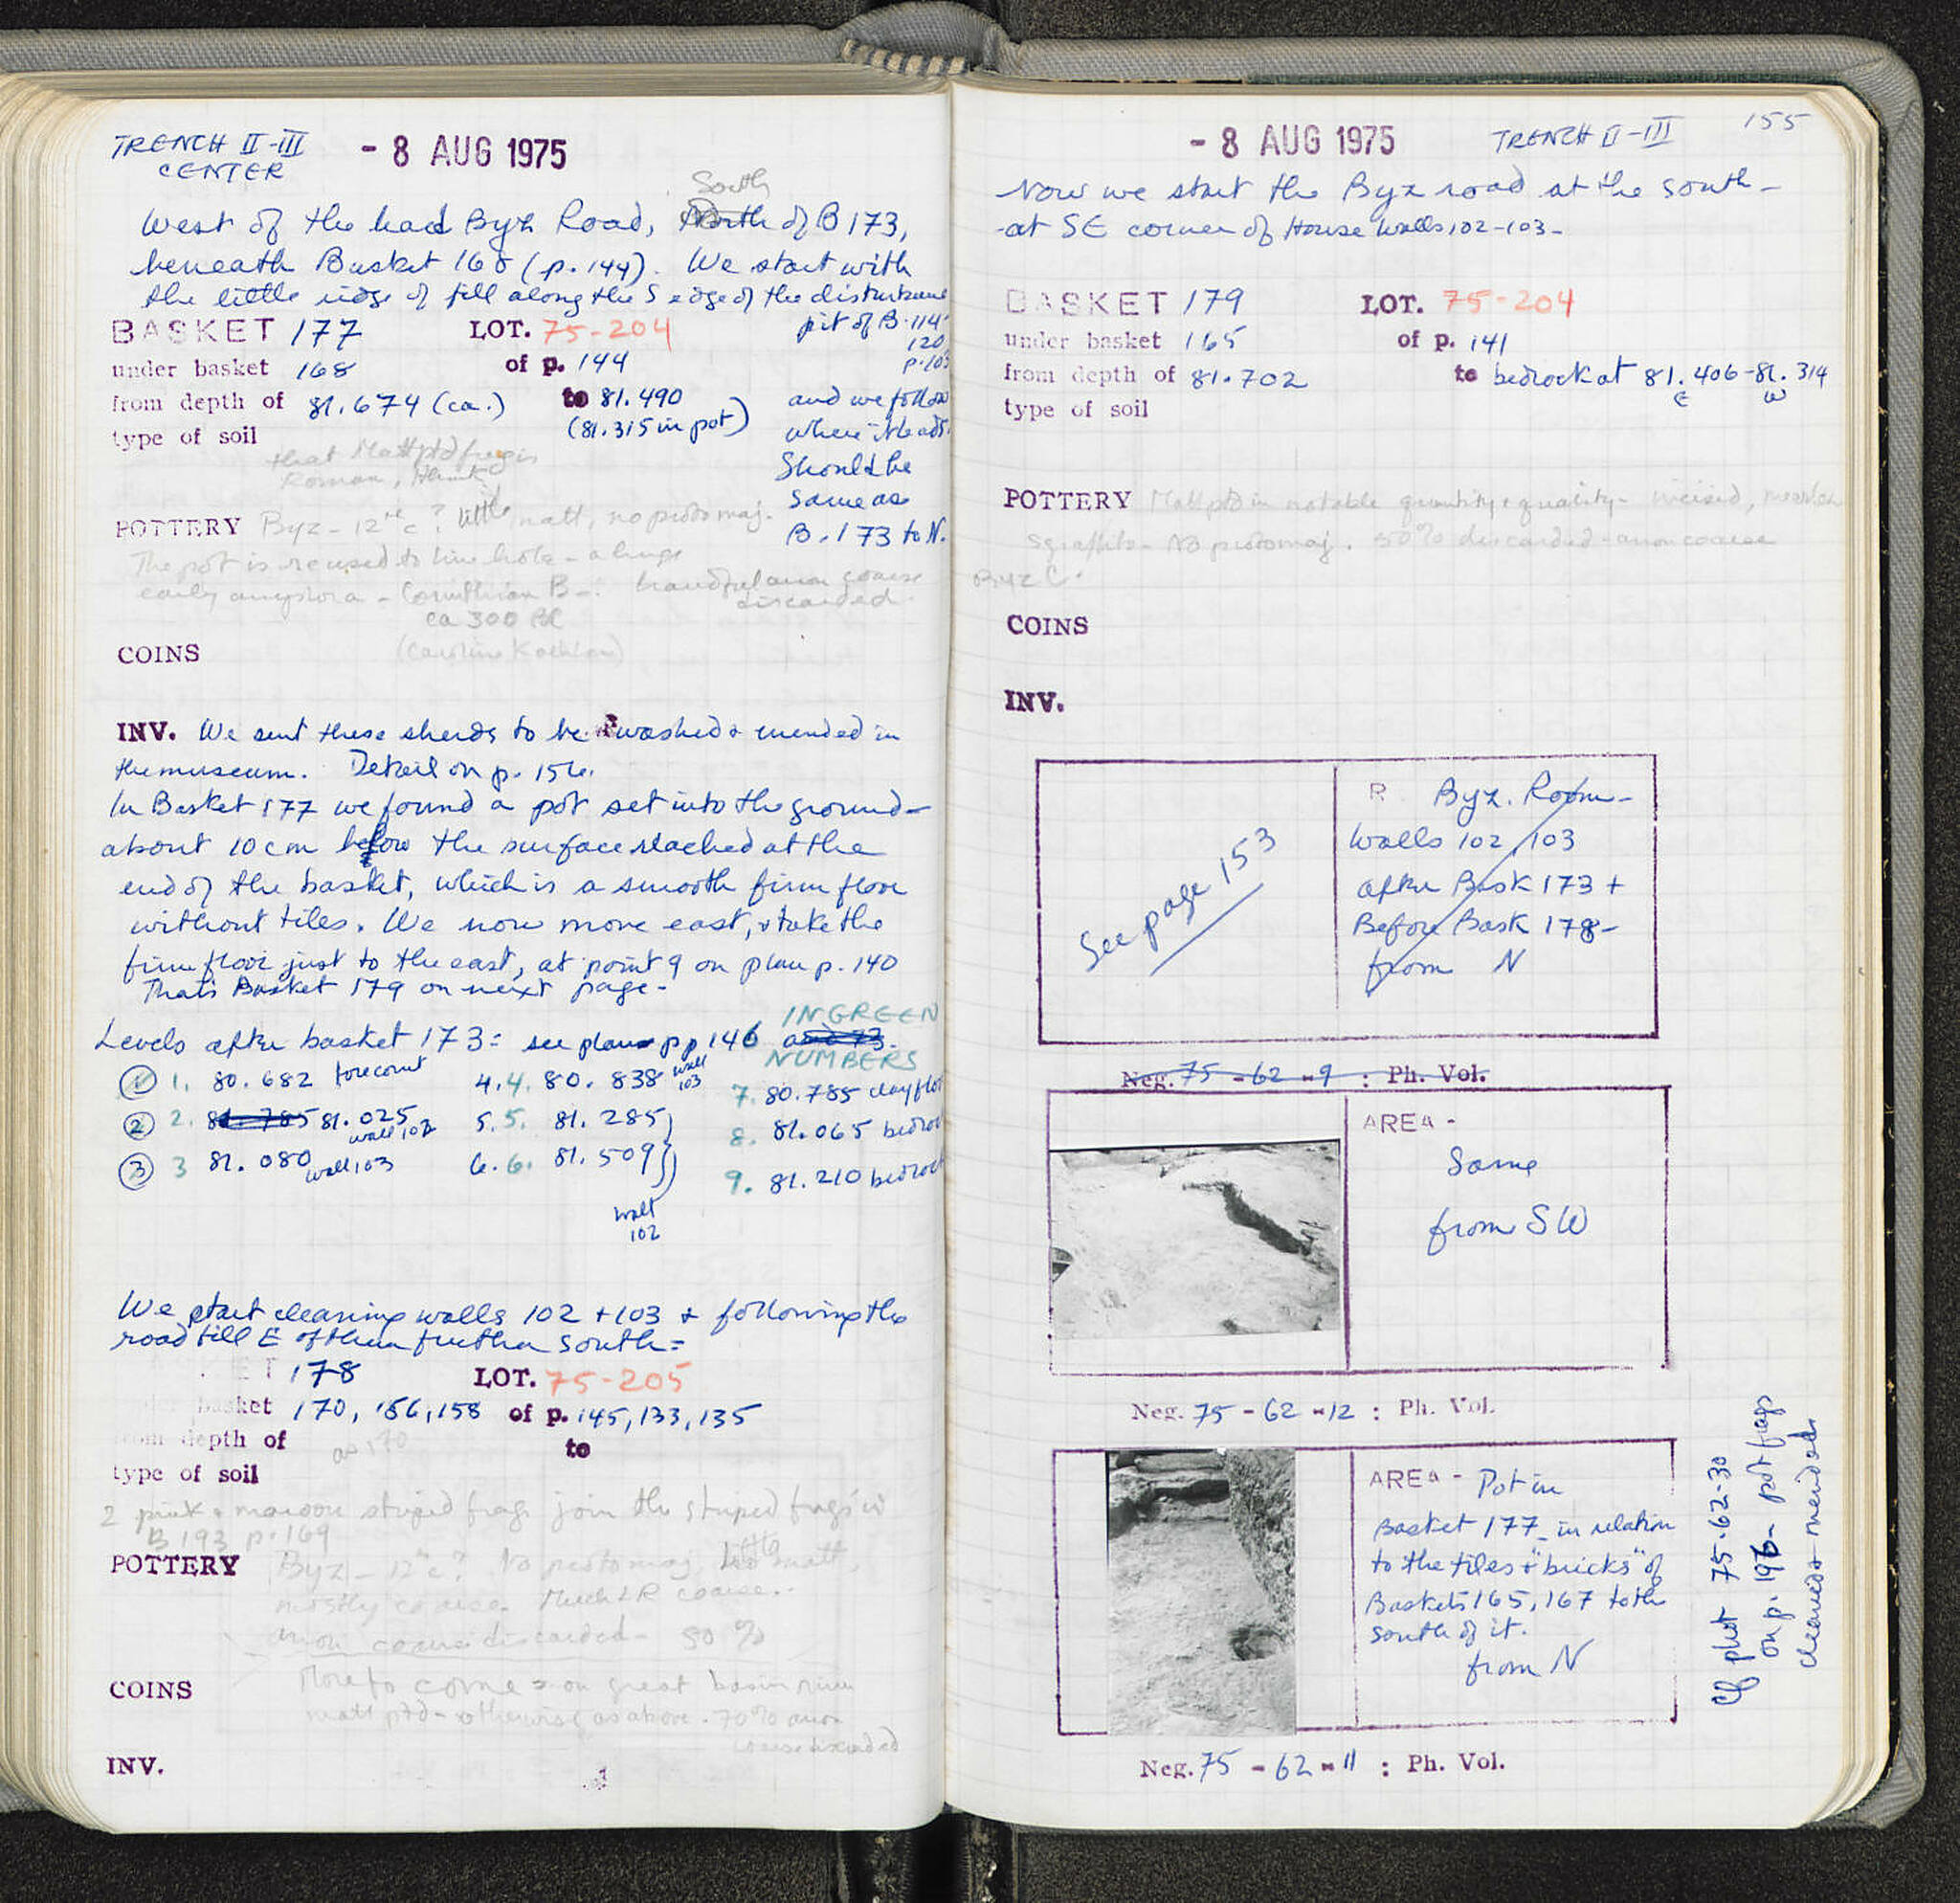 TRENCH II-III
CENTER
- 8 AUG 1975
South
West of the hard Byz Road, North of B 173,
beneath Basket 168 (p. 144). We start with
the little ridge of fill along the S edge of the disturbance
pit of B. 114-
120
p. 103
BASKET 177 LOT. 75-204
under basket 168 of p. 144
from depth of 81.674 (ca.) to 81.490
(81.315 in pot)
and we follow
where it leads.
Should be
same as
B. 173 to N.
type of soil
that Matt ptd frag is
Roman, I think
POTTERY Byz - 12th c? little matt no protomaj.
The pot is reused to line hole - a huge
early amphora - Corinthian B -. coarse
discarded.
ca 300 BC
(Caroline Koehler)
COINS
INV. We sent these sherds to be washed & mended in
the museum. Detail on p. 156.
In Basket 177 we found a pot set into the ground -
about 10 cm below the surface reached at the
end of the basket, which is a smooth firm floor
without tiles. We now move east, & take the
firm floor just to the east, at point 9 on plan p. 140
That's Basket 179 on next page -
Levels after basket 173: see plan pp 146
IN GREEN
NUMBERS
① 1. 80.682 forecourt
② 2. 81.025 wall 102
③ 3 81.080 wall 103
4. 4. 80.838 wall 103
5. 5. 81.285
6. 6. 81.509
wall
102
7. 80.785 clay floor
8. 81.065 bedrock
9. 81.210 bedrock
We start clearing walls 102 + 103 & following the
road fill E of them further south =
178 LOT. 75-205
under basket 170, 156, 158 of p. 145, 133, 135
from depth of as 170 to
type of soil
2 pink & maroon striped frags join the striped frags in
B 193 p. 169
POTTERY Byz - 12th c? No protomaj, little matt,
mostly coarse. Much LR coarse.
anon coarse discarded - 50 %
COINS
More to come = on great basin rim
matt ptd - otherwise as above. 70% anon
coarse discarded
INV.
- 8 AUG 1975
TRENCH II-III
155
Now we start the Byz road at the south -
-at SE corner of House walls 102-103 -
BASKET 179 LOT. 75-204
under basket 165 of p. 141
from depth of 81.702 to bedrock at 81.406-81.314
E W
type of soil
POTTERY Matt ptd in notable quantity & quality - incised,
sgraffito - No protomaj. 50% discarded - anon coarse
Byz C.
COINS
INV.
See page 153
R Byz. Room -
Walls 102, 103
after Bask 173 +
Before Bask 178 -
from N
Neg. 75 - 62 - 9 : Ph. Vol.
AREA -
Same
from SW
Neg. 75 - 62 - 12 : Ph. Vol.
AREA - Pot in
Basket 177 - in relation
to the tiles & "bricks" of
Baskets 165, 167 to the
south of it.
from N
Neg. 75 - 62 - 11 : Ph. Vol.
Cf phot 75-62-30
on p. 196 - pot frags
cleaned & mended